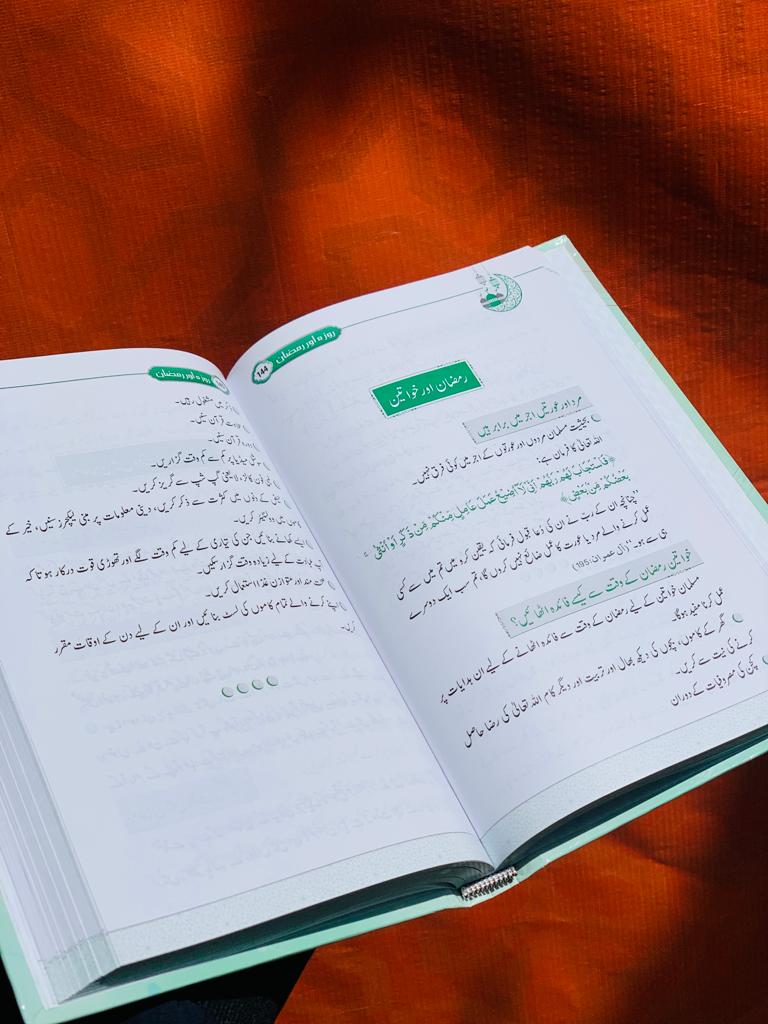 روزہ اور رمضان
144
رمضان اور خواتین
مرد اور عورتیں اجر میں برابر ہیں
بحیثیت مسلمان مردوں اور عورتوں کے اجر میں کوئی فرق نہیں۔
اللہ تعالیٰ کا فرمان ہے:
﴿فَاسْتَجَابَ لَهُمْ رَبُّهُمْ أَنِّي لَا أُضِيعُ عَمَلَ عَامِلٍ مِنْكُمْ مِنْ ذَكَرٍ أَوْ أُنْثَى
بَعْضُكُمْ مِنْ بَعْضٍ﴾
”چنانچہ ان کے ربّ نے ان کی دُعا قبول فرمائی کہ یقین کرو میں تم میں سے کسی
عمل کرنے والے مرد یا عورت کا عمل ضائع نہیں کروں گا، تم سب ایک دوسرے
ہی سے ہو۔“ (آل عمران:195)
خواتین رمضان کے وقت سے کیسے فائدہ اٹھائیں؟
مسلمان خواتین کے لیے رمضان کے وقت سے فائدہ اٹھانے کے لیے ان ہدایات پر
عمل کرنا مفید ہوگا۔
گھر کے کاموں، بچوں کی دیکھ بھال اور تربیت اور دیگر کام اللہ تعالیٰ کی رضا حاصل
کرنے کی نیت سے کریں۔
کچن کی مصروفیات کے دوران
روزہ اور رمضان
ذکر میں مشغول رہیں۔
قرآن سنیں۔
قرآن سنیں۔
میڈیا پر کم سے کم وقت گزاریں۔
فون کالز، لایعنی گپ شپ سے گریز کریں۔
کے دنوں میں کثرت سے ذکر کریں، دینی معلومات پر مبنی لیکچرز سنیں، خیر کے
کاموں میں وقف کریں۔
ایسے کھانے بنائیں جن کی تیاری کے لیے کم وقت لگے اور تھوڑی قوت درکار ہو تاکہ
عبادت کے لیے زیادہ وقت گزار سکیں۔
صحت مند اور متوازن غذا استعمال کریں۔
اپنے کرنے والے تمام کاموں کی لسٹ بنائیں اور ان کے لیے دن کے اوقات مقرر
کریں۔